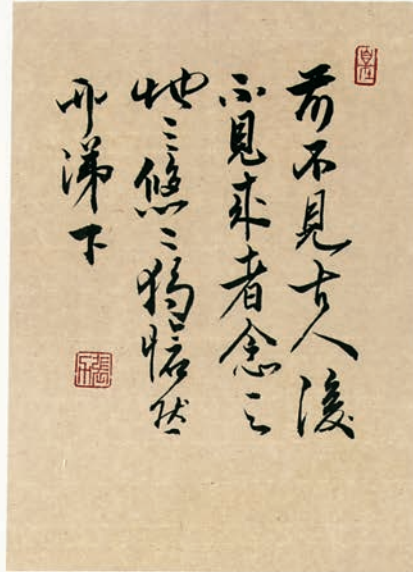 前不見古人後
不見來者念天
地之悠々獨愴然
而涕下